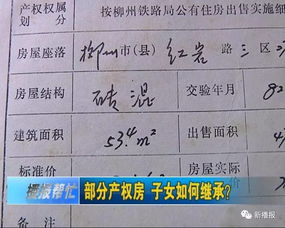 产权权属 按柳州铁路局公有住房出售实施细
划分
房屋座落 柳州市(县) 红岩 路 三 区 3
房屋结构 砖混 交验年月 82
建筑面积 53.4m² 出售面积
标准价 房屋实际
部分产权房 子女如何继承?
备注
新播报